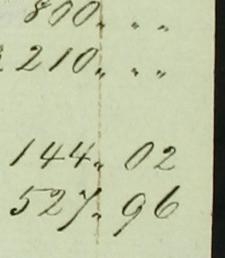 800„ „ „
210„ „ „
144„ 02
527„ 96